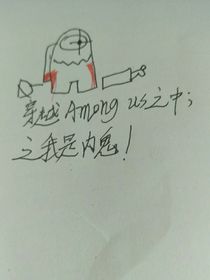 穿越Among us之中;
之我是内鬼!